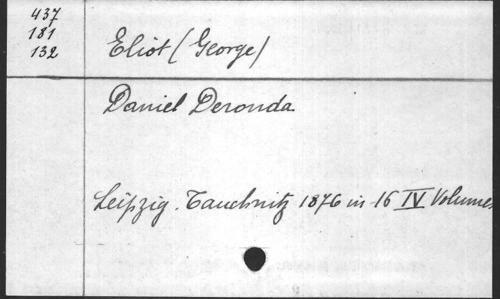 437
181
132
Eliot (George)
Daniel Deronda
Leipzig. Tauchnitz 1876 in 16 IV Volumes